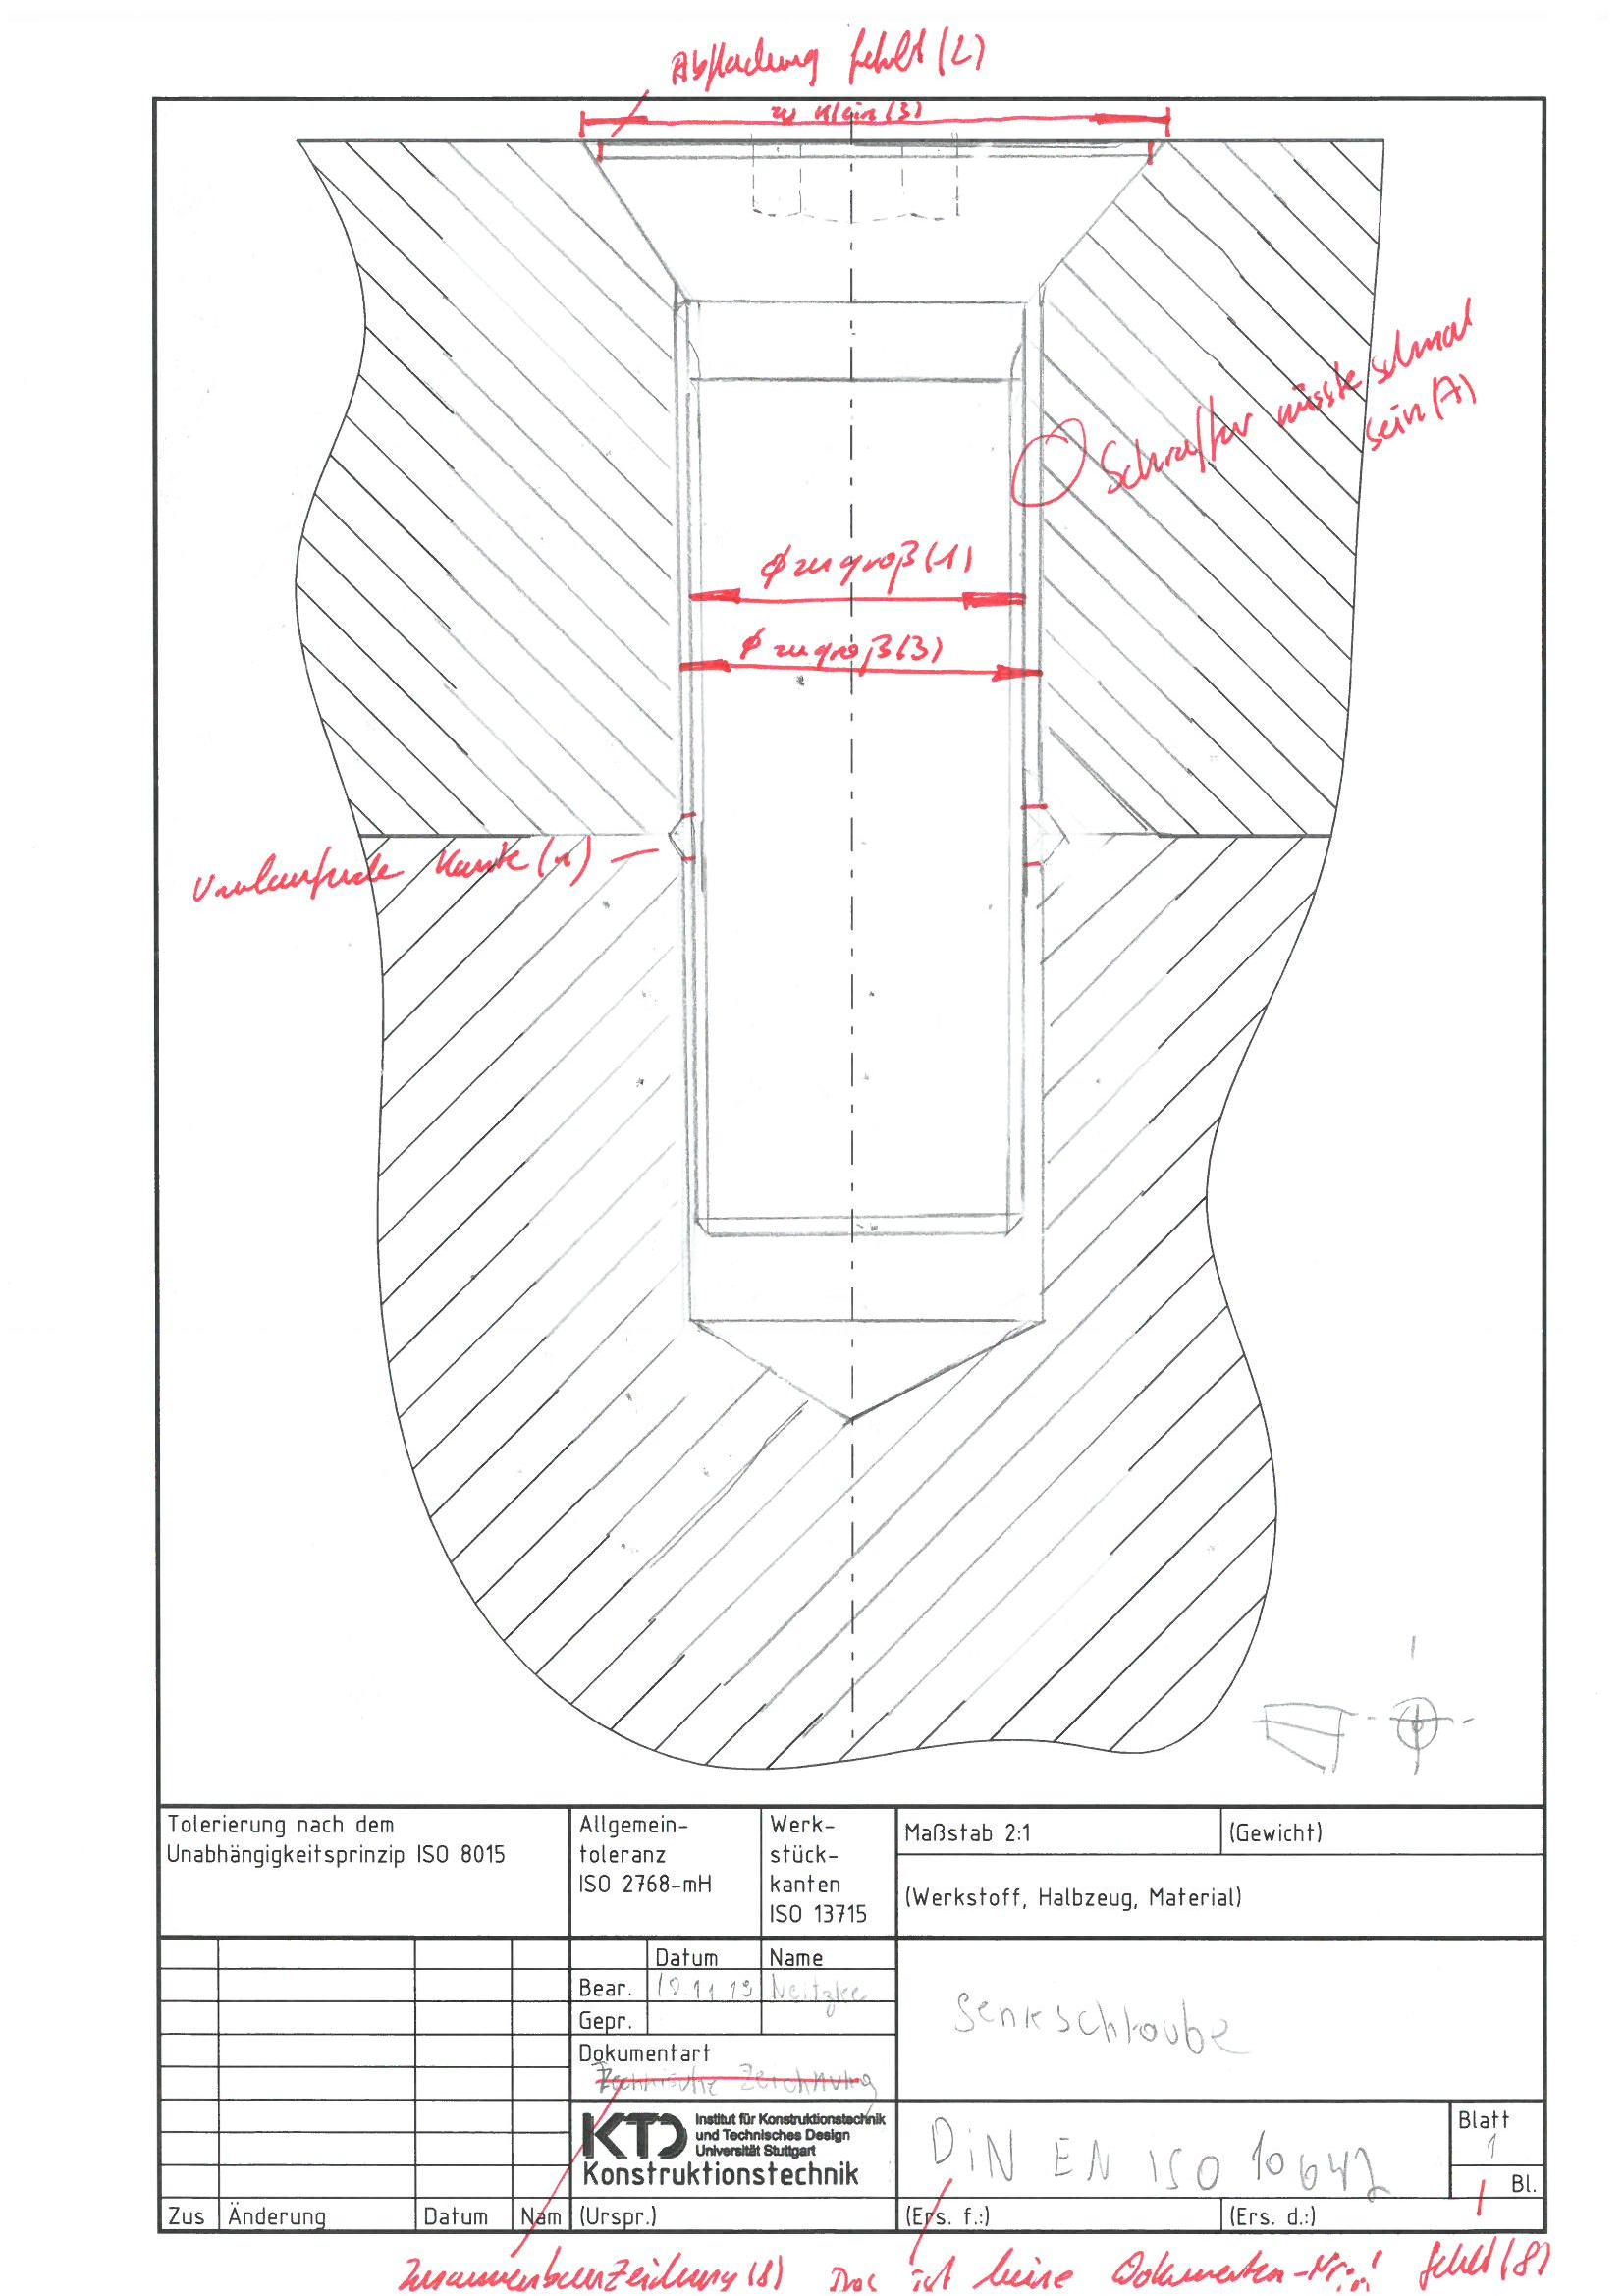 Abflachung fehlt (2)
zu klein (3)
Schraffur müsste schmal
sein (7)
ϕ zu groß (1)
ϕ zu groß (3)
Umlaufende Kante (1)
Tolerierung nach dem
Unabhängigkeitsprinzip ISO 8015
Allgemein-
toleranz
ISO 2768-mH
Werk-
stück-
kanten
ISO 13715
Maßstab 2:1
(Gewicht)
(Werkstoff, Halbzeug, Material)
Datum Name
Bear. 19.11.19 Neitzke
Gepr.
Dokumentart
Technische Zeichnung
Senkschraube
KTD Institut für Konstruktionstechnik
und Technisches Design
Universität Stuttgart
Konstruktionstechnik
DiN EN ISO 10642
Blatt
1
Bl.
Zus Änderung Datum Nam (Urspr.) (Ers. f.:) (Ers. d.:)
Zusammenbauzeichnung (8) Das ist keine Dokumenten-Nr.! fehlt (8)